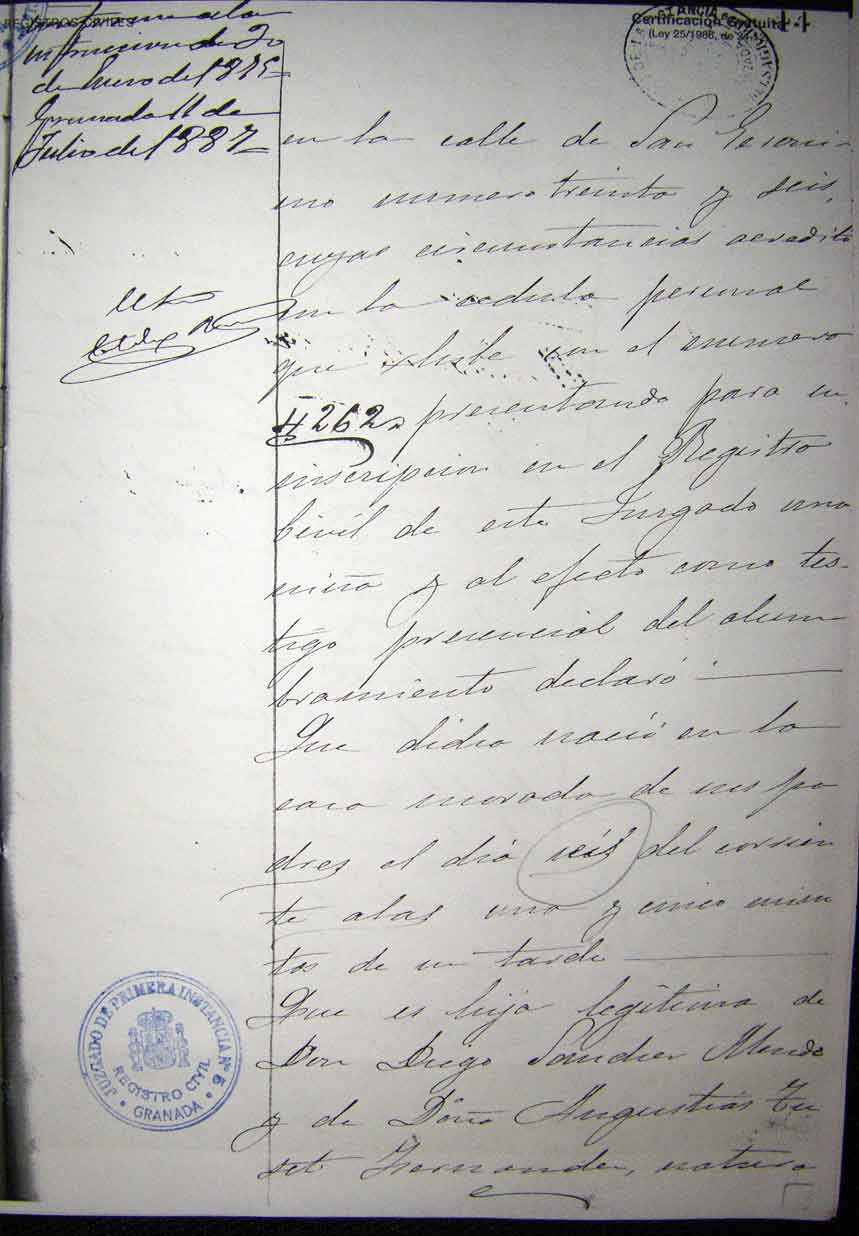 REGISTROS CIVILES
Certificación Gratuita
(Ley 25/1986, de 24
instruccion de 20
de Enero de 1875
Granada 11 de
Julio de 1887
en la calle de San Geroni
mo numero treinta y seis,
cuyas circunstancias acredita
con la cedula personal
que exhibe con el numero
4262, presentando para su
inscripcion en el Registro
Civil de este Juzgado una
niña y al efecto como tes-
tigo presencial del alum
bramiento declaró
Que dicha nació en la
casa morada de sus pa
dres el dia seis del corrien
te a las una y cinco minu
tos de su tarde
Que es hija legitima de
Don Diego Sanchez
y de Doña Angustias Tu
set Fernandez, natura
JUZGADO DE PRIMERA INSTANCIA Nº 5
REGISTRO CIVIL
GRANADA